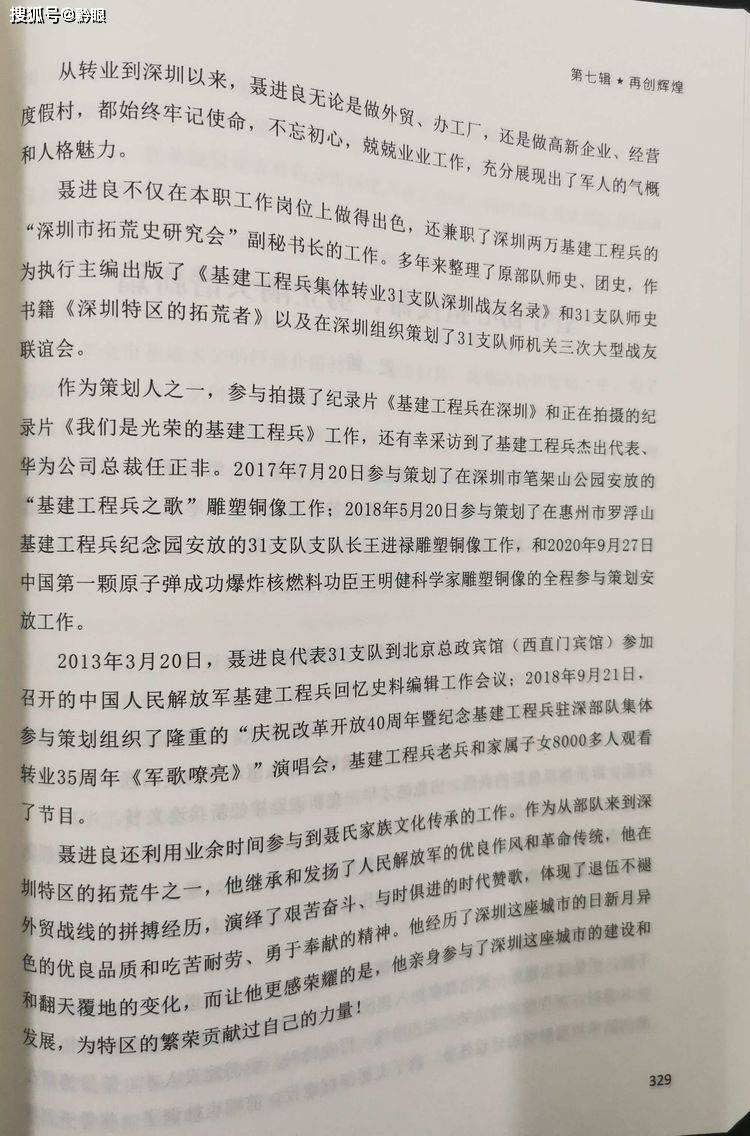 搜狐号@黔眼
第七辑★再创辉煌
从转业到深圳以来，聂进良无论是做外贸、办工厂，还是做高新企业、经营
度假村，都始终牢记使命，不忘初心，兢兢业业工作，充分展现出了军人的气概
和人格魅力。
聂进良不仅在本职工作岗位上做得出色，还兼职了深圳两万基建工程兵的
“深圳市拓荒史研究会”副秘书长的工作。多年来整理了原部队师史、团史，作
为执行主编出版了《基建工程兵集体转业31支队深圳战友名录》和31支队师史
书籍《深圳特区的拓荒者》以及在深圳组织策划了31支队师机关三次大型战友
联谊会。
作为策划人之一，参与拍摄了纪录片《基建工程兵在深圳》和正在拍摄的纪
录片《我们是光荣的基建工程兵》工作，还有幸采访到了基建工程兵杰出代表、
华为公司总裁任正非。2017年7月20日参与策划了在深圳市笔架山公园安放的
“基建工程兵之歌”雕塑铜像工作；2018年5月20日参与策划了在惠州市罗浮山
基建工程兵纪念园安放的31支队支队长王进禄雕塑铜像工作，和2020年9月27日
中国第一颗原子弹成功爆炸核燃料功臣王明健科学家雕塑铜像的全程参与策划安
放工作。
2013年3月20日，聂进良代表31支队到北京总政宾馆（西直门宾馆）参加
召开的中国人民解放军基建工程兵回忆史料编辑工作会议；2018年9月21日，
参与策划组织了隆重的“庆祝改革开放40周年暨纪念基建工程兵驻深部队集体
转业35周年《军歌嘹亮》”演唱会，基建工程兵老兵和家属子女8000多人观看
了节目。
聂进良还利用业余时间参与到聂氏家族文化传承的工作。作为从部队来到深
圳特区的拓荒牛之一，他继承和发扬了人民解放军的优良作风和革命传统，他在
外贸战线的拼搏经历，演绎了艰苦奋斗、与时俱进的时代赞歌，体现了退伍不褪
色的优良品质和吃苦耐劳、勇于奉献的精神。他经历了深圳这座城市的日新月异
和翻天覆地的变化，而让他更感荣耀的是，他亲身参与了深圳这座城市的建设和
发展，为特区的繁荣贡献过自己的力量！
329